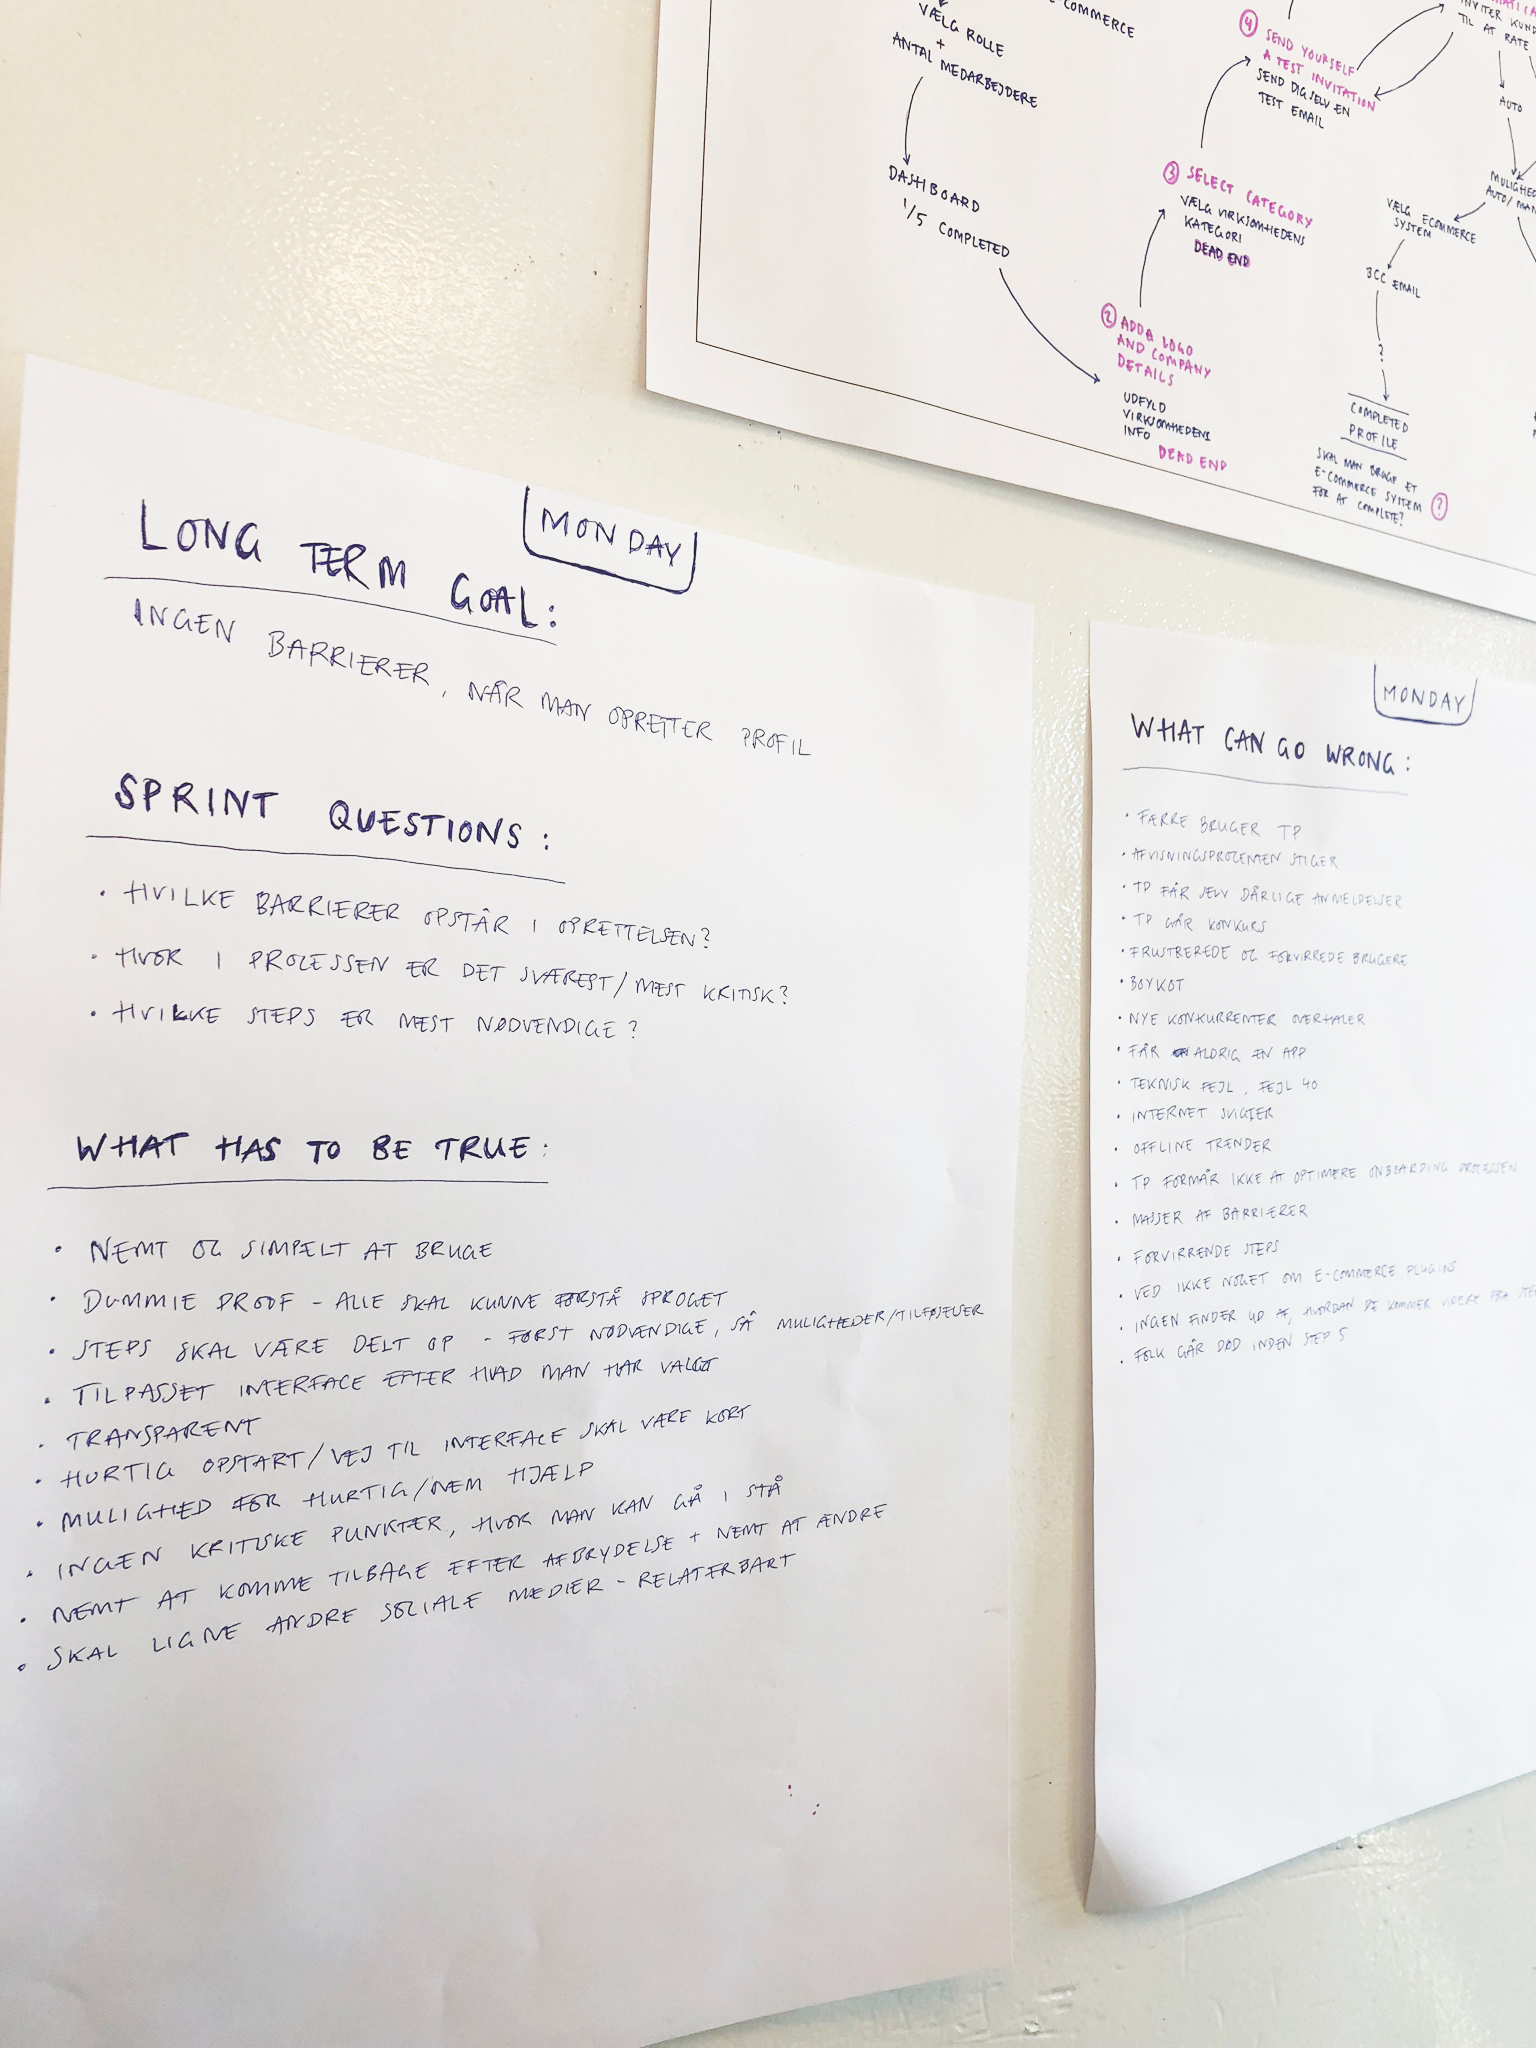 VÆLG ROLLE
+
ANTAL MEDARBEJDERE
DASHBOARD
1/5 COMPLETED
COMMERCE
④ SEND YOURSELF
A TEST INVITATION
SEND DIG SELV EN
TEST EMAIL
③ SELECT CATEGORY
VÆLG VIRKSOMHEDENS
KATEGORI
DEAD END
② ADD A LOGO
AND COMPANY
DETAILS
UDFYLD
VIRKSOMHEDENS
INFO
DEAD END
INVITER KUND
TIL AT RATE
AUTO
MULIGHED
AUTO/MAN
VÆLG ECOMMERCE
SYSTEM
BCC EMAIL
?
COMPLETED
PROFILE
SKAL MAN BRUGE ET
E-COMMERCE SYSTEM
FOR AT COMPLETE?
?
MONDAY
LONG TERM GOAL:
INGEN BARRIERER, NÅR MAN OPRETTER PROFIL
SPRINT QUESTIONS:
• HVILKE BARRIERER OPSTÅR I OPRETTELSEN?
• HVOR I PROCESSEN ER DET SVÆREST/MEST KRITISK?
• HVILKE STEPS ER MEST NØDVENDIGE?
WHAT HAS TO BE TRUE:
• NEMT OG SIMPELT AT BRUGE
• DUMMIE PROOF - ALLE SKAL KUNNE FORSTÅ SPROGET
• STEPS SKAL VÆRE DELT OP - FØRST NØDVENDIGE, SÅ MULIGHEDER/TILFØJELSER
• TILPASSET INTERFACE EFTER HVAD MAN HAR VALGT
• TRANSPARENT
• HURTIG OPSTART/VEJ TIL INTERFACE SKAL VÆRE KORT
• MULIGHED FOR HURTIG/NEM HJÆLP
• INGEN KRITISKE PUNKTER, HVOR MAN KAN GÅ I STÅ
• NEMT AT KOMME TILBAGE EFTER AFBRYDELSE + NEMT AT ÆNDRE
• SKAL LIGNE ANDRE SOCIALE MEDIER - RELATERBART
MONDAY
WHAT CAN GO WRONG:
• FÆRRE BRUGER TP
• AFVISNINGSPROCENTEN STIGER
• TP FÅR SELV DÅRLIGE ANMELDELSER
• TP GÅR KONKURS
• FRUSTREREDE OG FORVIRREDE BRUGERE
• BOYKOT
• NYE KONKURRENTER OVERHALER
• FÅR ALDRIG EN APP
• TEKNISK FEJL, FEJL 40
• INTERNET SVIGTER
• OFFLINE TRENDER
• TP FORMÅR IKKE AT OPTIMERE ONBOARDING PROCESSEN
• MASSER AF BARRIERER
• FORVIRRENDE STEPS
• VED IKKE NOGET OM E-COMMERCE PLUGINS
• INGEN FINDER UD AF, HVORDAN DE KOMMER VIDERE FRA STE
• FOLK GÅR DØD INDEN STEP 5